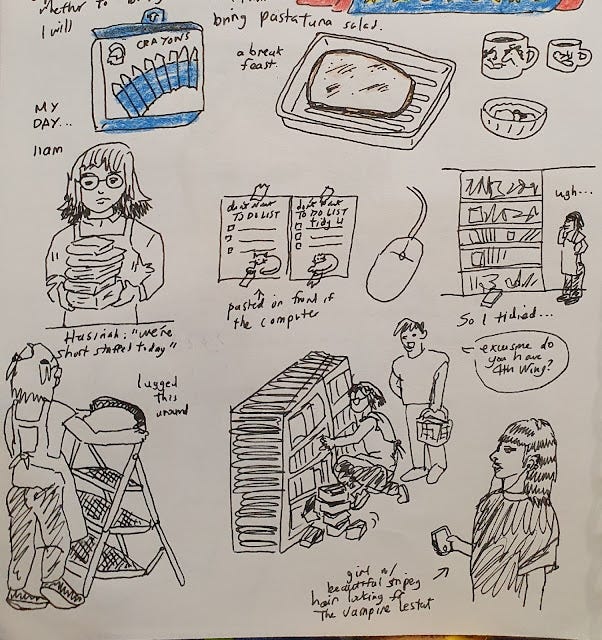 whether to
I will
bring pasta tuna salad.
CRAYONS
a break
feast.
MY
DAY...
11am
don't want
TO DO LIST
don't want
TO DO LIST
tidy 4
pasted in front of
the computer
ugh...
So I tidied...
Husinah: "we're
short staffed today"
excuse me do
you have
4th Wing?
lugged
this
around
girl w/
beautiful stripey
hair looking for
The Vampire Lestat